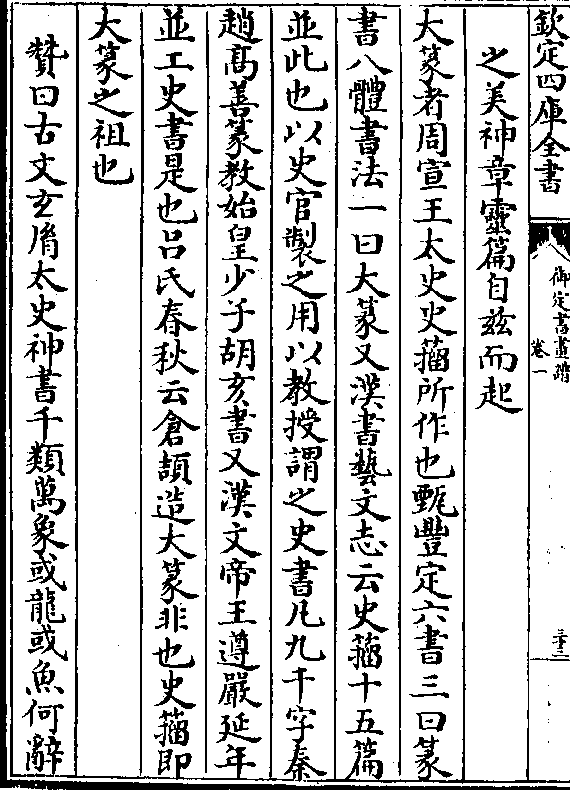 欽定四庫全書
御定書畫譜
卷一
三十三
之美神章靈篇自茲而起
大篆者周宣王太史史籀所作也甄豐定六書三曰篆
書八體書法一曰大篆又漢書藝文志云史籀十五篇
並此也以史官製之用以教授謂之史書凡九千字秦
趙髙善篆教始皇少子胡亥書又漢文帝王遵嚴延年
並工史書是也吕氏春秋云倉頡造大篆非也史籀即
大篆之祖也
贊曰古文玄胤太史神書千類萬象或龍或魚何辭